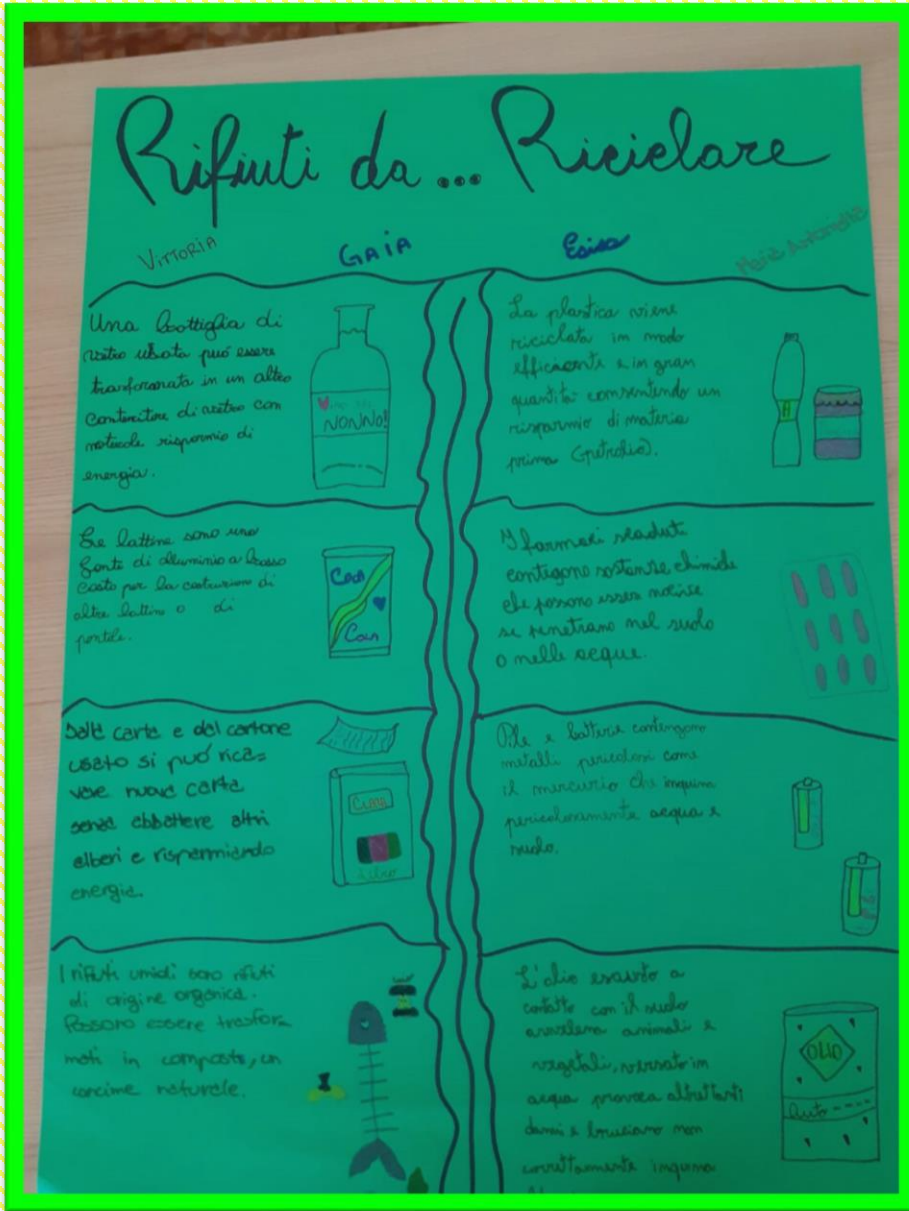 Rifiuti da... Riciclare
VITTORIA
GAIA
Maria Antonella
Una bottiglia di
vetro usata può essere
trasformata in un altro
Contenitore di vetro con
notevole risparmio di
energia.
NONNO!
Le lattine sono una
fonte di alluminio a basso
costo per la costruzione di
altre lattine o di
pentole.
Cola
Cola
Dalla carta e dal cartone
usato si può rica=
vare nuova carta
senza abbattere altri
alberi e risparmiando
energia.
Libro
I rifiuti umidi sono rifiuti
di origine organica.
Possono essere trasfor
mati in composto, un
concime naturale.
La plastica viene
riciclata in modo
efficiente e in gran
quantità consentendo un
risparmio di materia
prima (petrolio).
I farmaci scaduti
contegono sostanze chimiche
che possono essere nocive
se penetrano nel suolo
o nelle acque.
Pile e batterie contengono
metalli pericolosi come
il mercurio che inquina
pericolosamente acqua e
suolo.
L'olio esausto a
contatto con il suolo
avvelena animali e
vegetali, versato in
acqua provoca altrettanti
danni e bruciano non
correttamente inquina
OLIO
auto